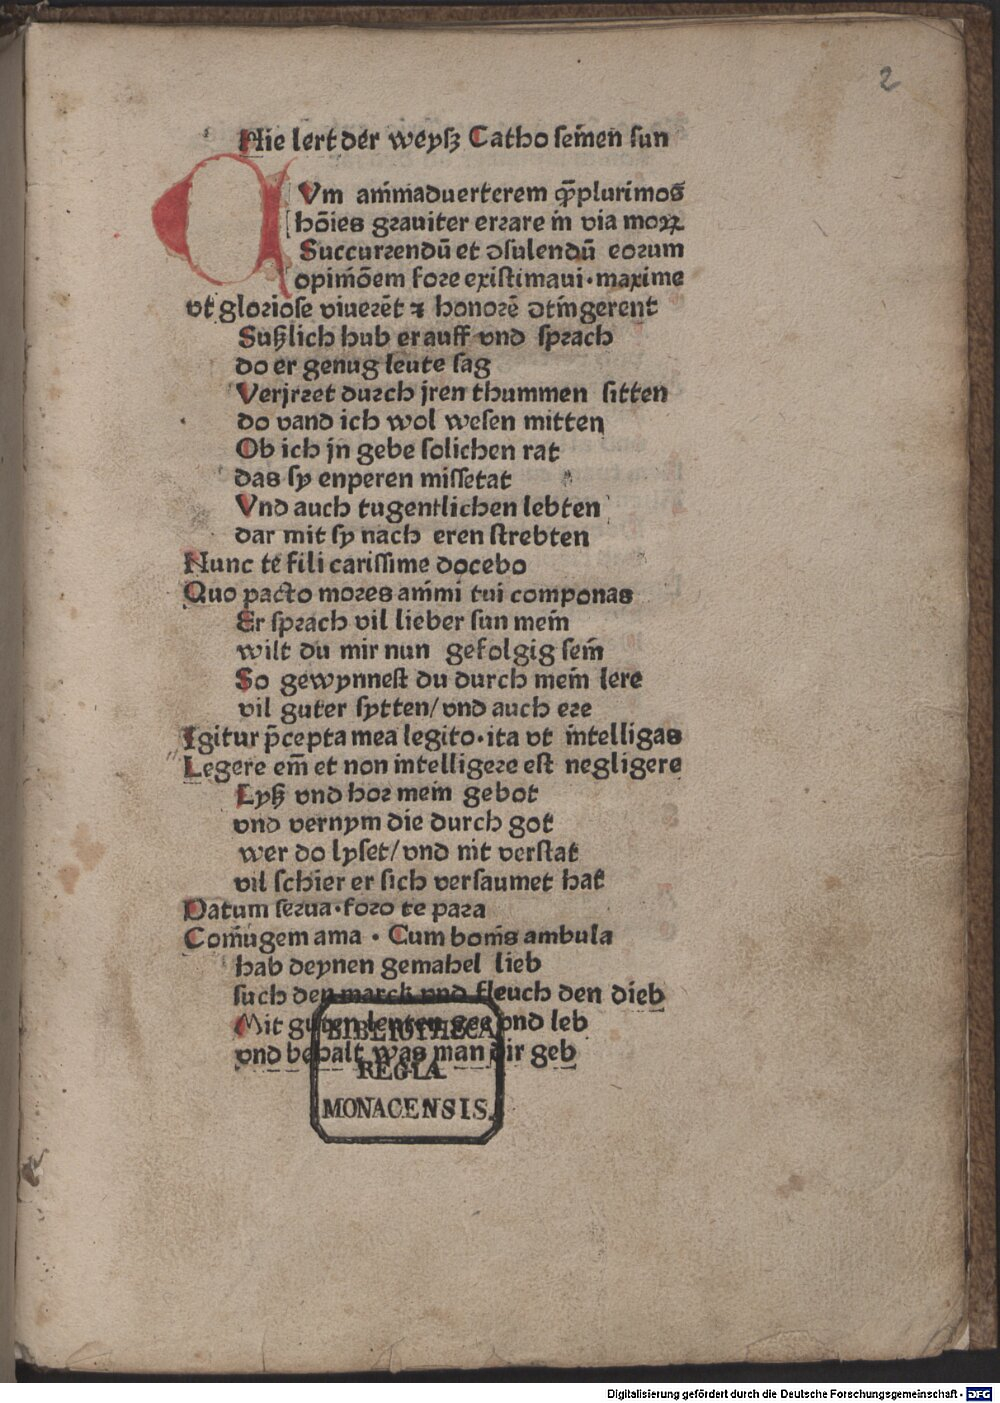 2
Hie lert der weyſz Catho ſeinen ſun
CVm animaduerterem ꝙ̄plurimos
hōies grauiter errare in via moꝝ
Succurrendū et ↄſulendū eorum
opiniōem fore exiſtimaui·maxime
vt glorioſe viuerēt ⁊ honorē ↄtingerent
Sußlich hub er auff vnd ſprach
do er genug leute ſag
Verjrret durch jren thummen ſitten
do vand ich wol weſen mitten
Ob ich jn gebe ſolichen rat
das ſy enperen miſſetat
Vnd auch tugentlichen lebten
dar mit ſy nach eren ſtrebten
Nunc te fili cariſſime docebo
Quo pacto mores animi tui componas
Er ſprach vil lieber ſun mein
wilt du mir nun gefolgig ſein
So gewynneſt du durch mein lere
vil guter ſytten/vnd auch ere
Igitur p̄cepta mea legito·ita vt intelligas
Legere em̄ et non intelligere eſt negligere
Lyß vnd hor mein gebot
vnd vernym die durch got
wer do lyſet/vnd nit verſtat
vil ſchier er ſich verſaumet hat
Datum ſerua·foro te para
Coniugem ama · Cum bonis ambula
hab deynen gemahel lieb
ſuch den marck vnd fleuch den dieb
Mit guten leuten gee vnd leb
vnd behalt was man dir geb
BIBLIOTHECA
REGIA
MONACENSIS.
Digitalisierung gefördert durch die Deutsche Forschungsgemeinschaft - DFG